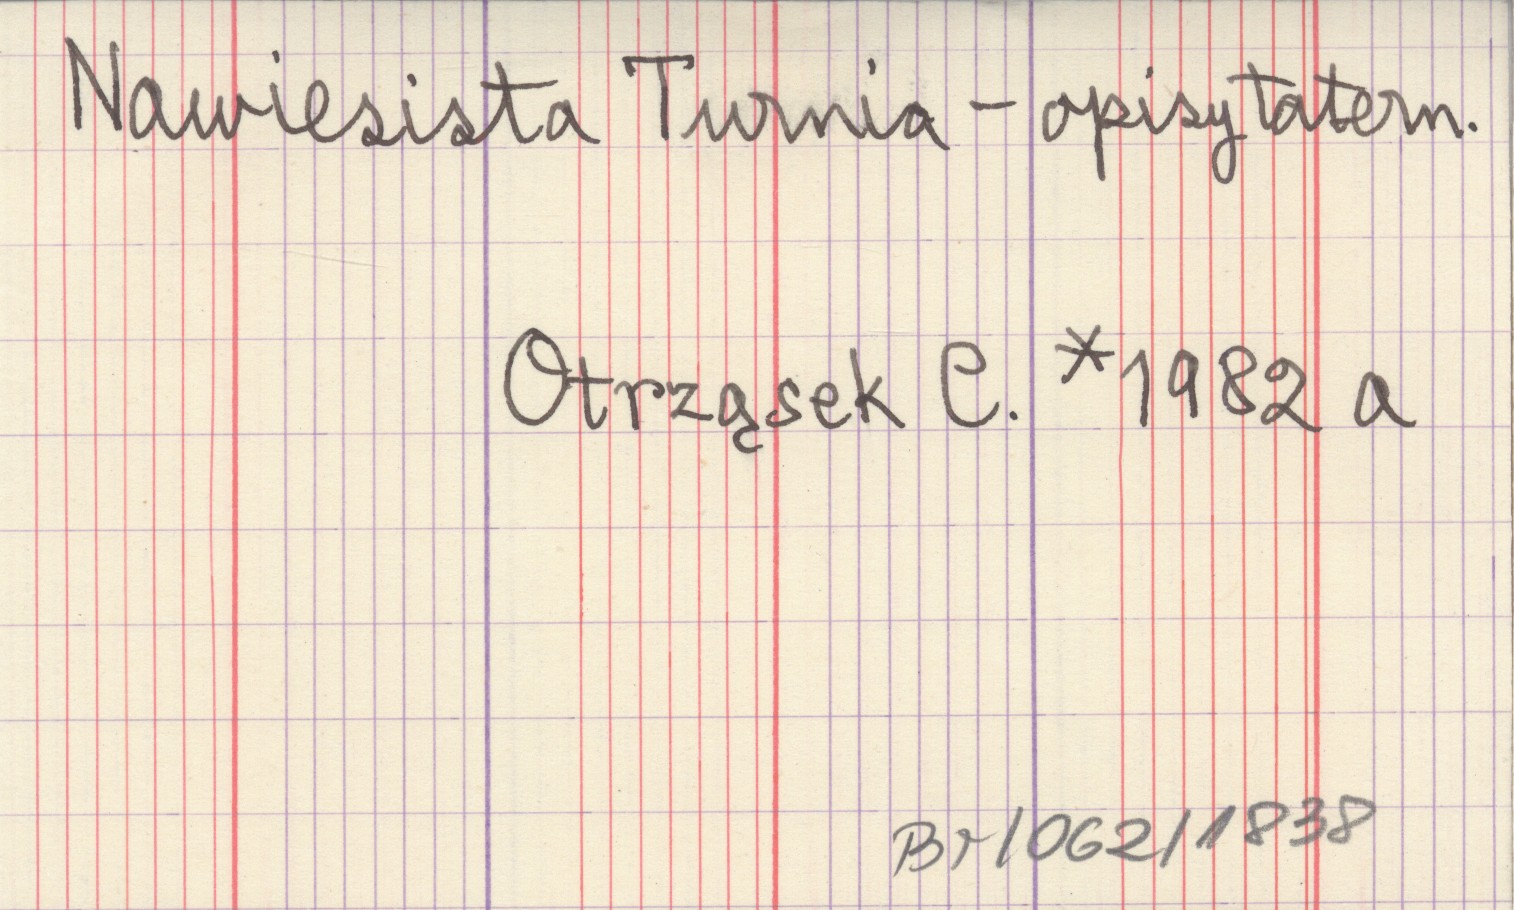 Nawiesista Turnia - opisy tatern.
Otrząsek C. *1982 a
Br/062/1838